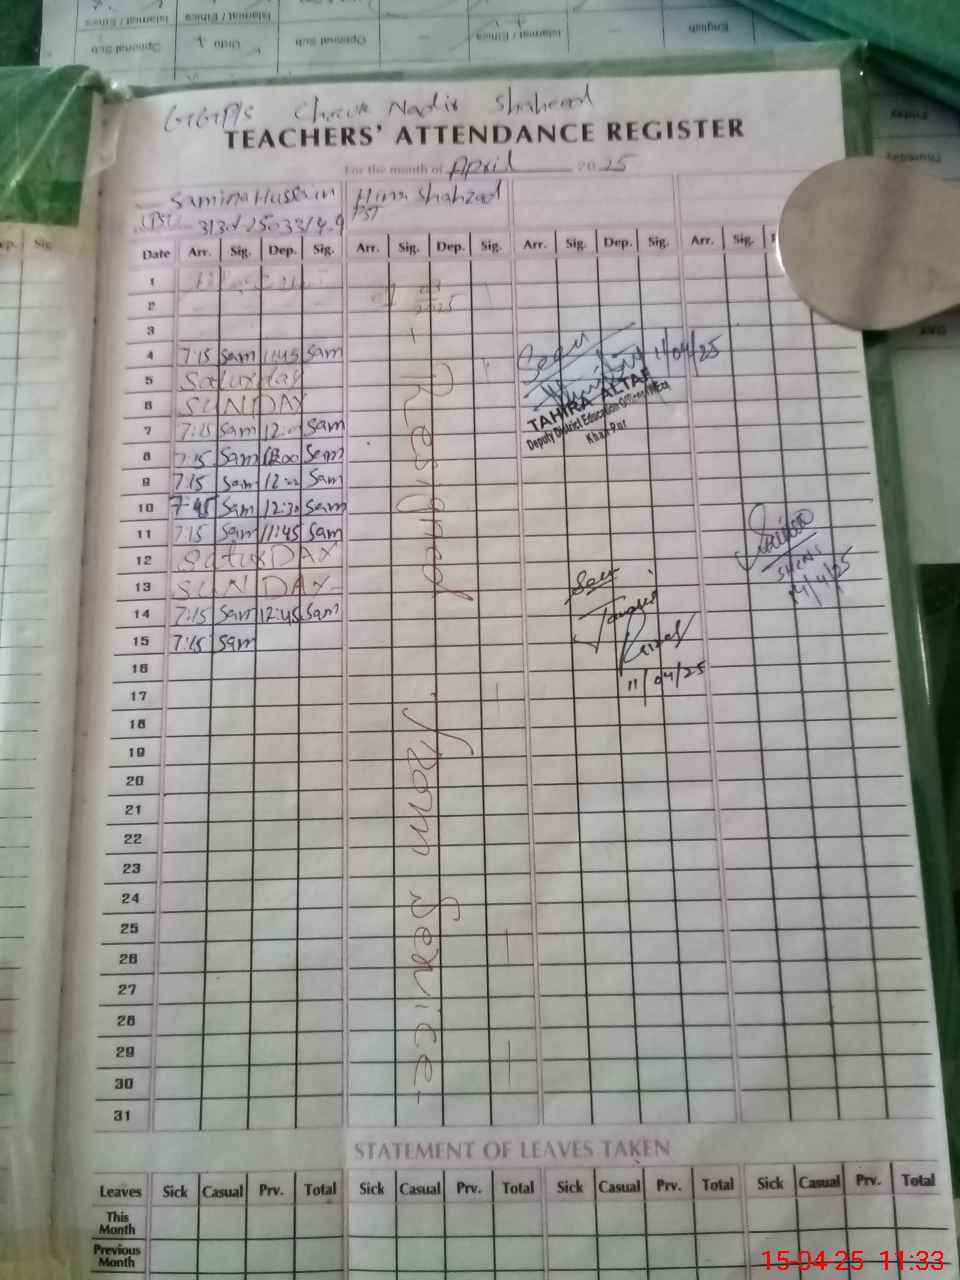 Chowk Nadir Shaheed
TEACHERS' ATTENDANCE REGISTER
For the month of April 2025
Samina Hussain
Hina Shahzad
PST
Date Arr. Sig. Dep. Sig. Arr. Sig. Dep. Sig. Arr. Sig. Dep. Sig. Arr. Sig.
1
2
3
4 7:15 Sam 11:45 Sam
5 Saturday
6 SUNDAY
7 7:15 Sam Sam
8 7:15 Sam Sam
9 7:15 Sam Sam
10 7:45 Sam 12:30 Sam
11 7:15 Sam 11:45 Sam
12 SaturDAY
13 SUNDAY
14 7:15 Sam 12:45 Sam
15 7:15 Sam
16
17
18
19
20
21
22
23
24
25
26
27
28
29
30
31
Resigned from Service
11/04/25
TAHIRA ALTAF
Deputy District Education Officer (W-EE)
Khan Pur
11/04/25
14/4/25
STATEMENT OF LEAVES TAKEN
Leaves Sick Casual Prv. Total Sick Casual Prv. Total Sick Casual Prv. Total Sick Casual Prv. Total
This Month
Previous Month
15-04-25 11:33